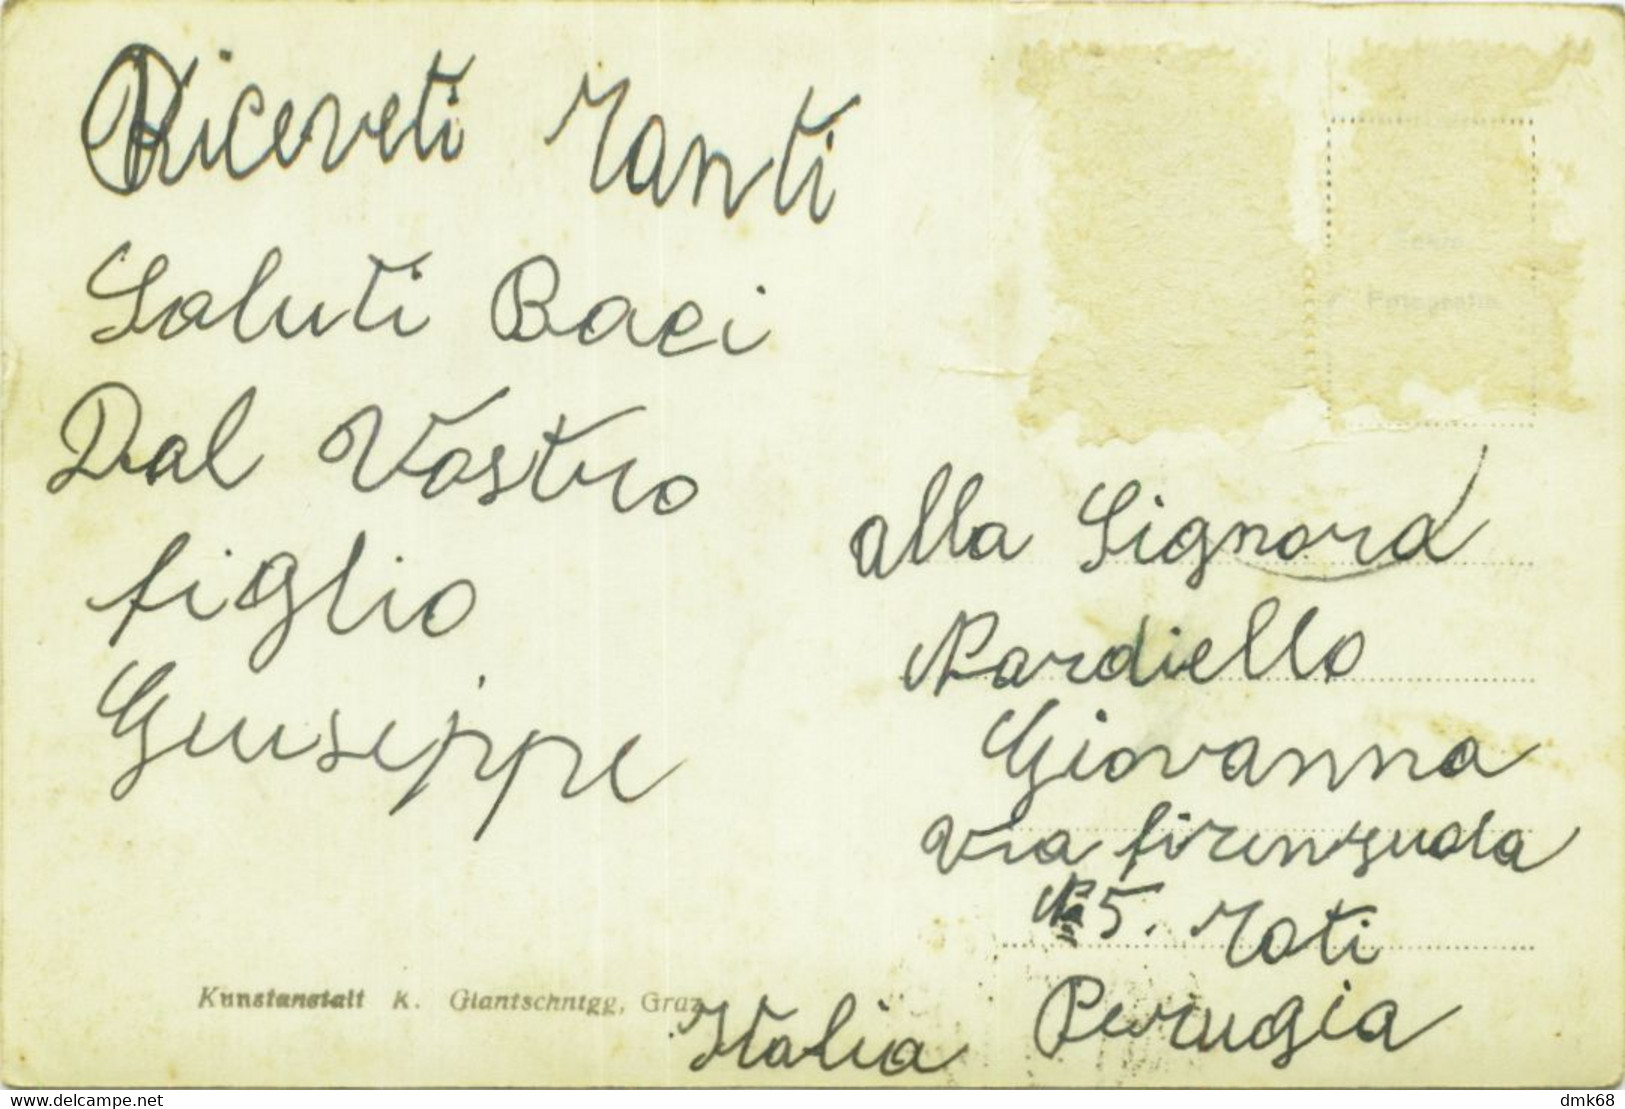 Riceveti Tanti
Saluti Baci
Dal Vostro
figlio
Giuseppe
alla Signora
Nardiello
Giovanna
Via firenzuola
N 5. Toti
Perugia
Italia
Kunstanstalt K. Glantschnigg, Graz
Echte
Fotografie
delcampe.net
dmk68